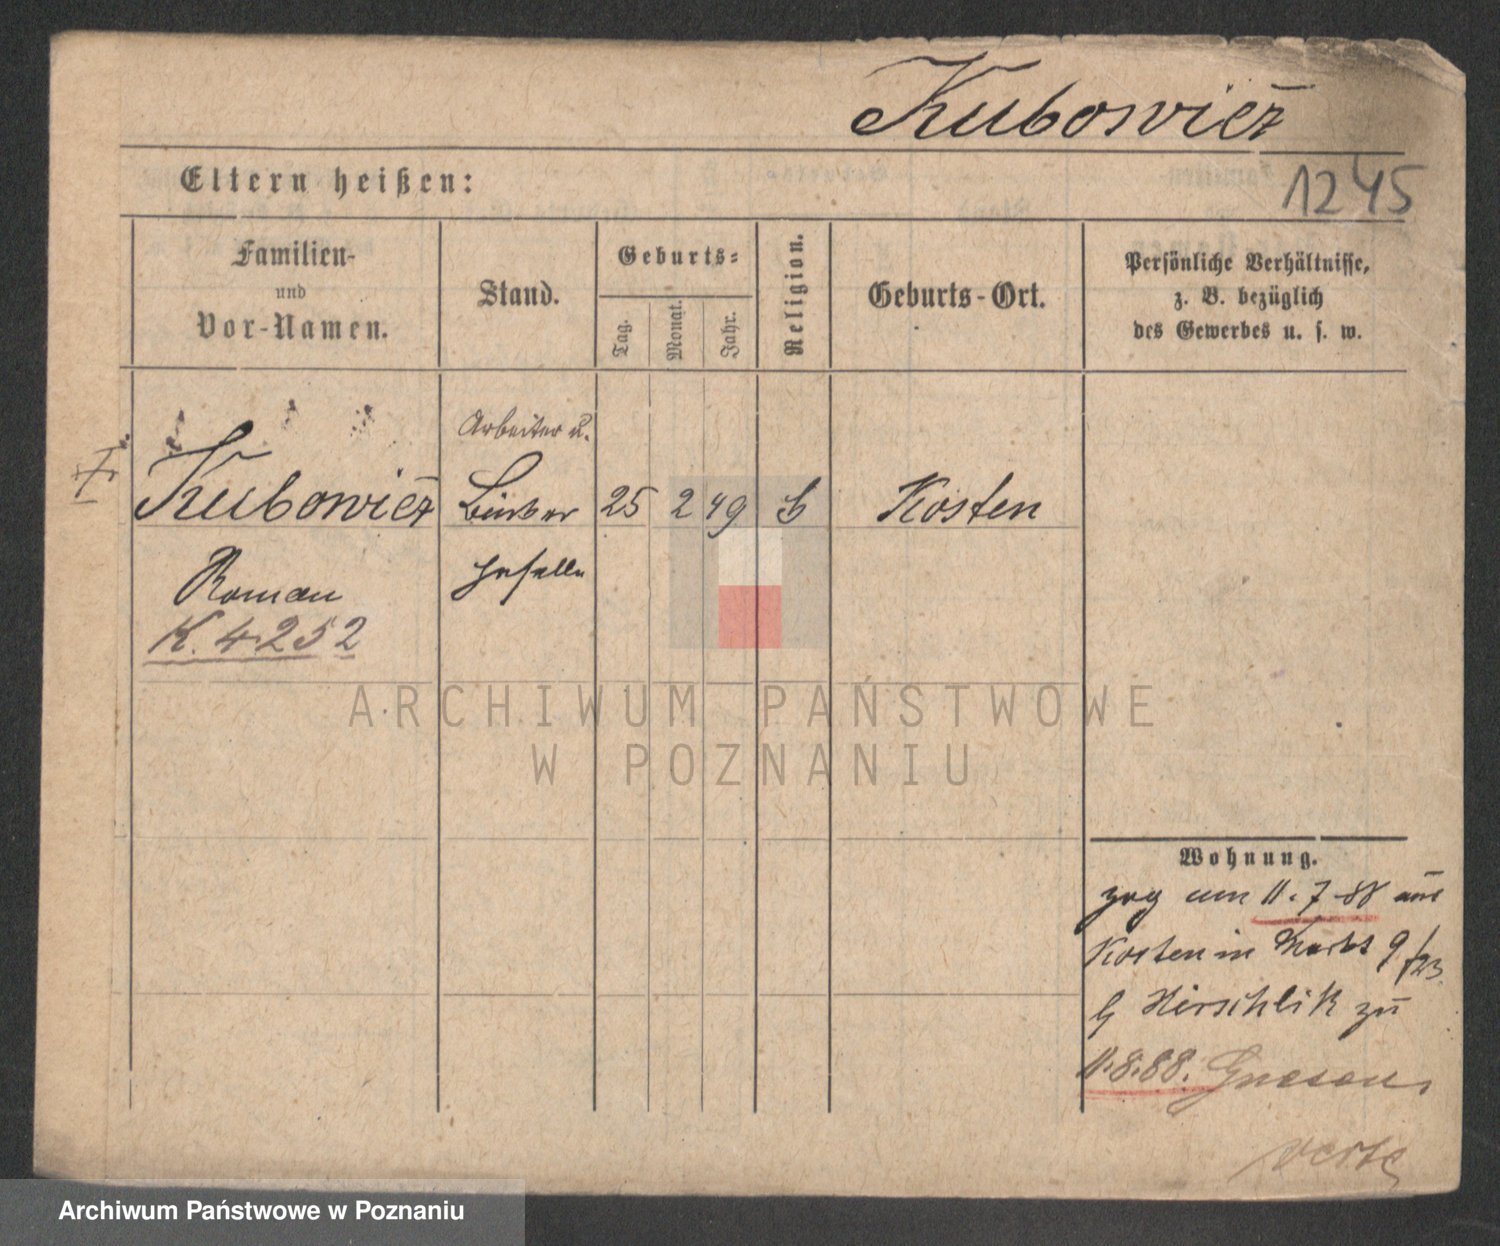 Kubowicz
1245
Eltern heißen:
Familien-
und
Vor-Namen.
Stand.
Geburts-
Tag.
Monat.
Jahr.
Religion.
Geburts-Ort.
Persönliche Verhältnisse,
z. B. bezüglich
des Gewerbes u. s. w.
Arbeiter u.
Kubowicz 25 2 49 Kosten
Roman Geselle
K. 4252
ARCHIWUM PAŃSTWOWE
W POZNANIU
Wohnung.
zog am 11.7.88 aus
Kosten in Markt 9/23
Hirschlik zu
11.8.88. Gnesen
verte
Archiwum Państwowe w Poznaniu